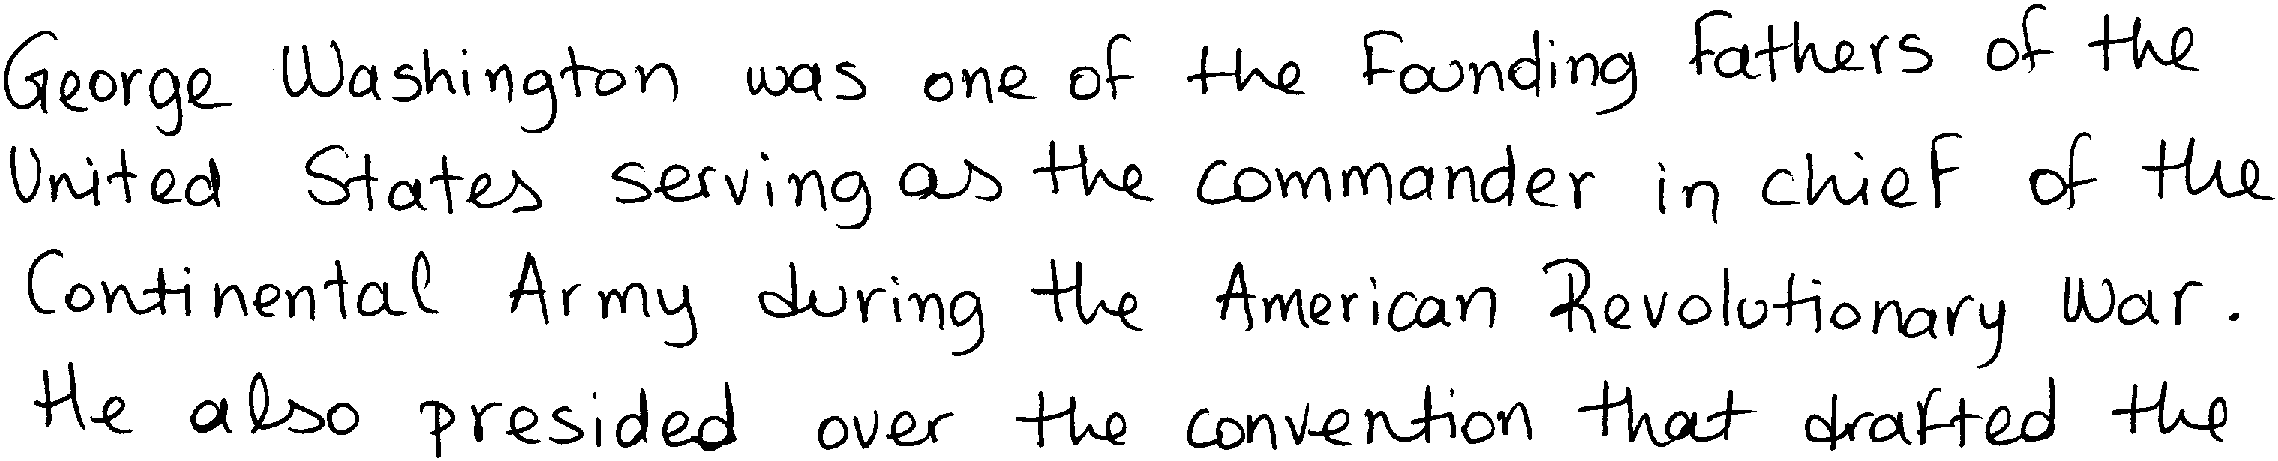 George Washington was one of the Founding Fathers of the
United States serving as the commander in chief of the
Continental Army during the American Revolutionary War.
He also presided over the convention that drafted the